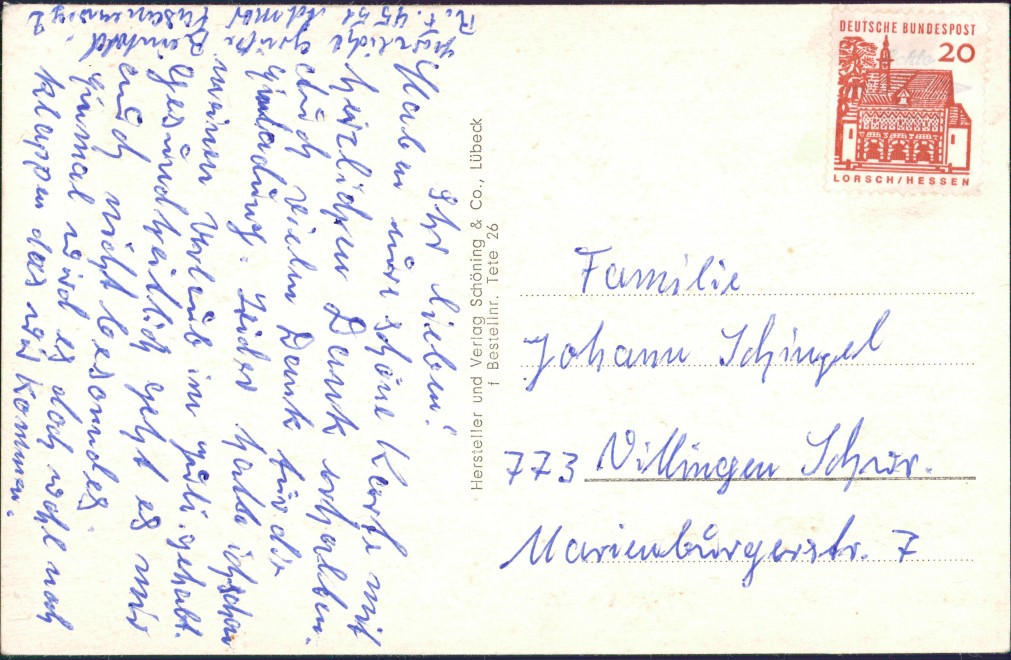 Ihr Lieben!
Haben eure schöne Karte mit
herzlichen Dank erhalben.
Auch vielen Dank für die
Einladung. Leider hatte ich schon
meinen Urlaub im Juli gehabt.
Gesundheitlich geht es mir
auch nicht besonders
Einmal wird es doch wohl noch
klappen das wir kommen.
Herzliche Grüße
Reinhold
Hersteller und Verlag Schöning & Co., Lübeck
f Bestellnr. Tete 26
DEUTSCHE BUNDESPOST
20
LORSCH/HESSEN
Familie
Johann Schingel
773 Villingen Schwr.
Marienburgerstr. 7